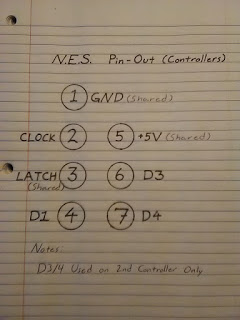 N.E.S. Pin-Out (Controllers)
1 GND (Shared)
CLOCK 2 5 +5V (Shared)
LATCH 3 6 D3
(Shared)
D1 4 7 D4
Notes:
D3/4 Used on 2nd Controller Only